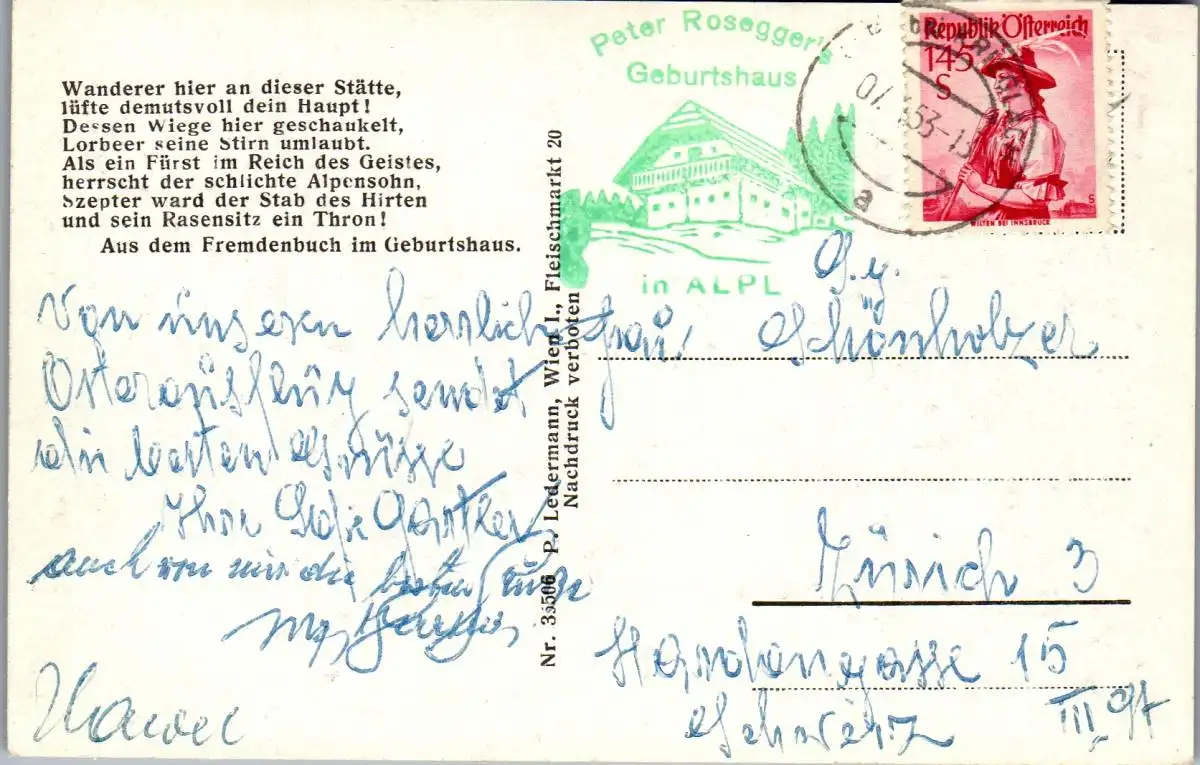 Wanderer hier an dieser Stätte,
lüfte demutsvoll dein Haupt!
Dessen Wiege hier geschaukelt,
Lorbeer seine Stirn umlaubt.
Als ein Fürst im Reich des Geistes,
herrscht der schlichte Alpensohn,
Szepter ward der Stab des Hirten
und sein Rasensitz ein Thron!
Aus dem Fremdenbuch im Geburtshaus.
Von unseren herrlich
Osterausflug sendet
die besten Grüsse
Ihre
auch von mir die besten Grüße
Nr. 39506 P. Ledermann, Wien I., Fleischmarkt 20
Nachdruck verboten
Peter Rosegger's
Geburtshaus
in ALPL
a
Republik Österreich
145
S
WILTEN BEI INNSBRUCK
Frau Schönholzer
Zürich 3
15
Schweiz III